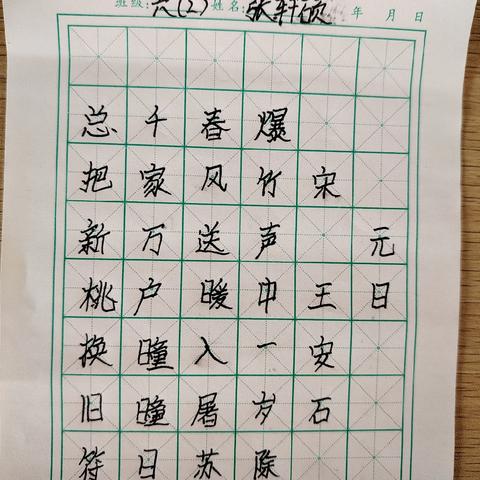 班级:六(2)姓名:张轩硕 年 月 日
元日
宋 王安石
爆竹声中一岁除
春风送暖入屠苏
千家万户曈曈日
总把新桃换旧符